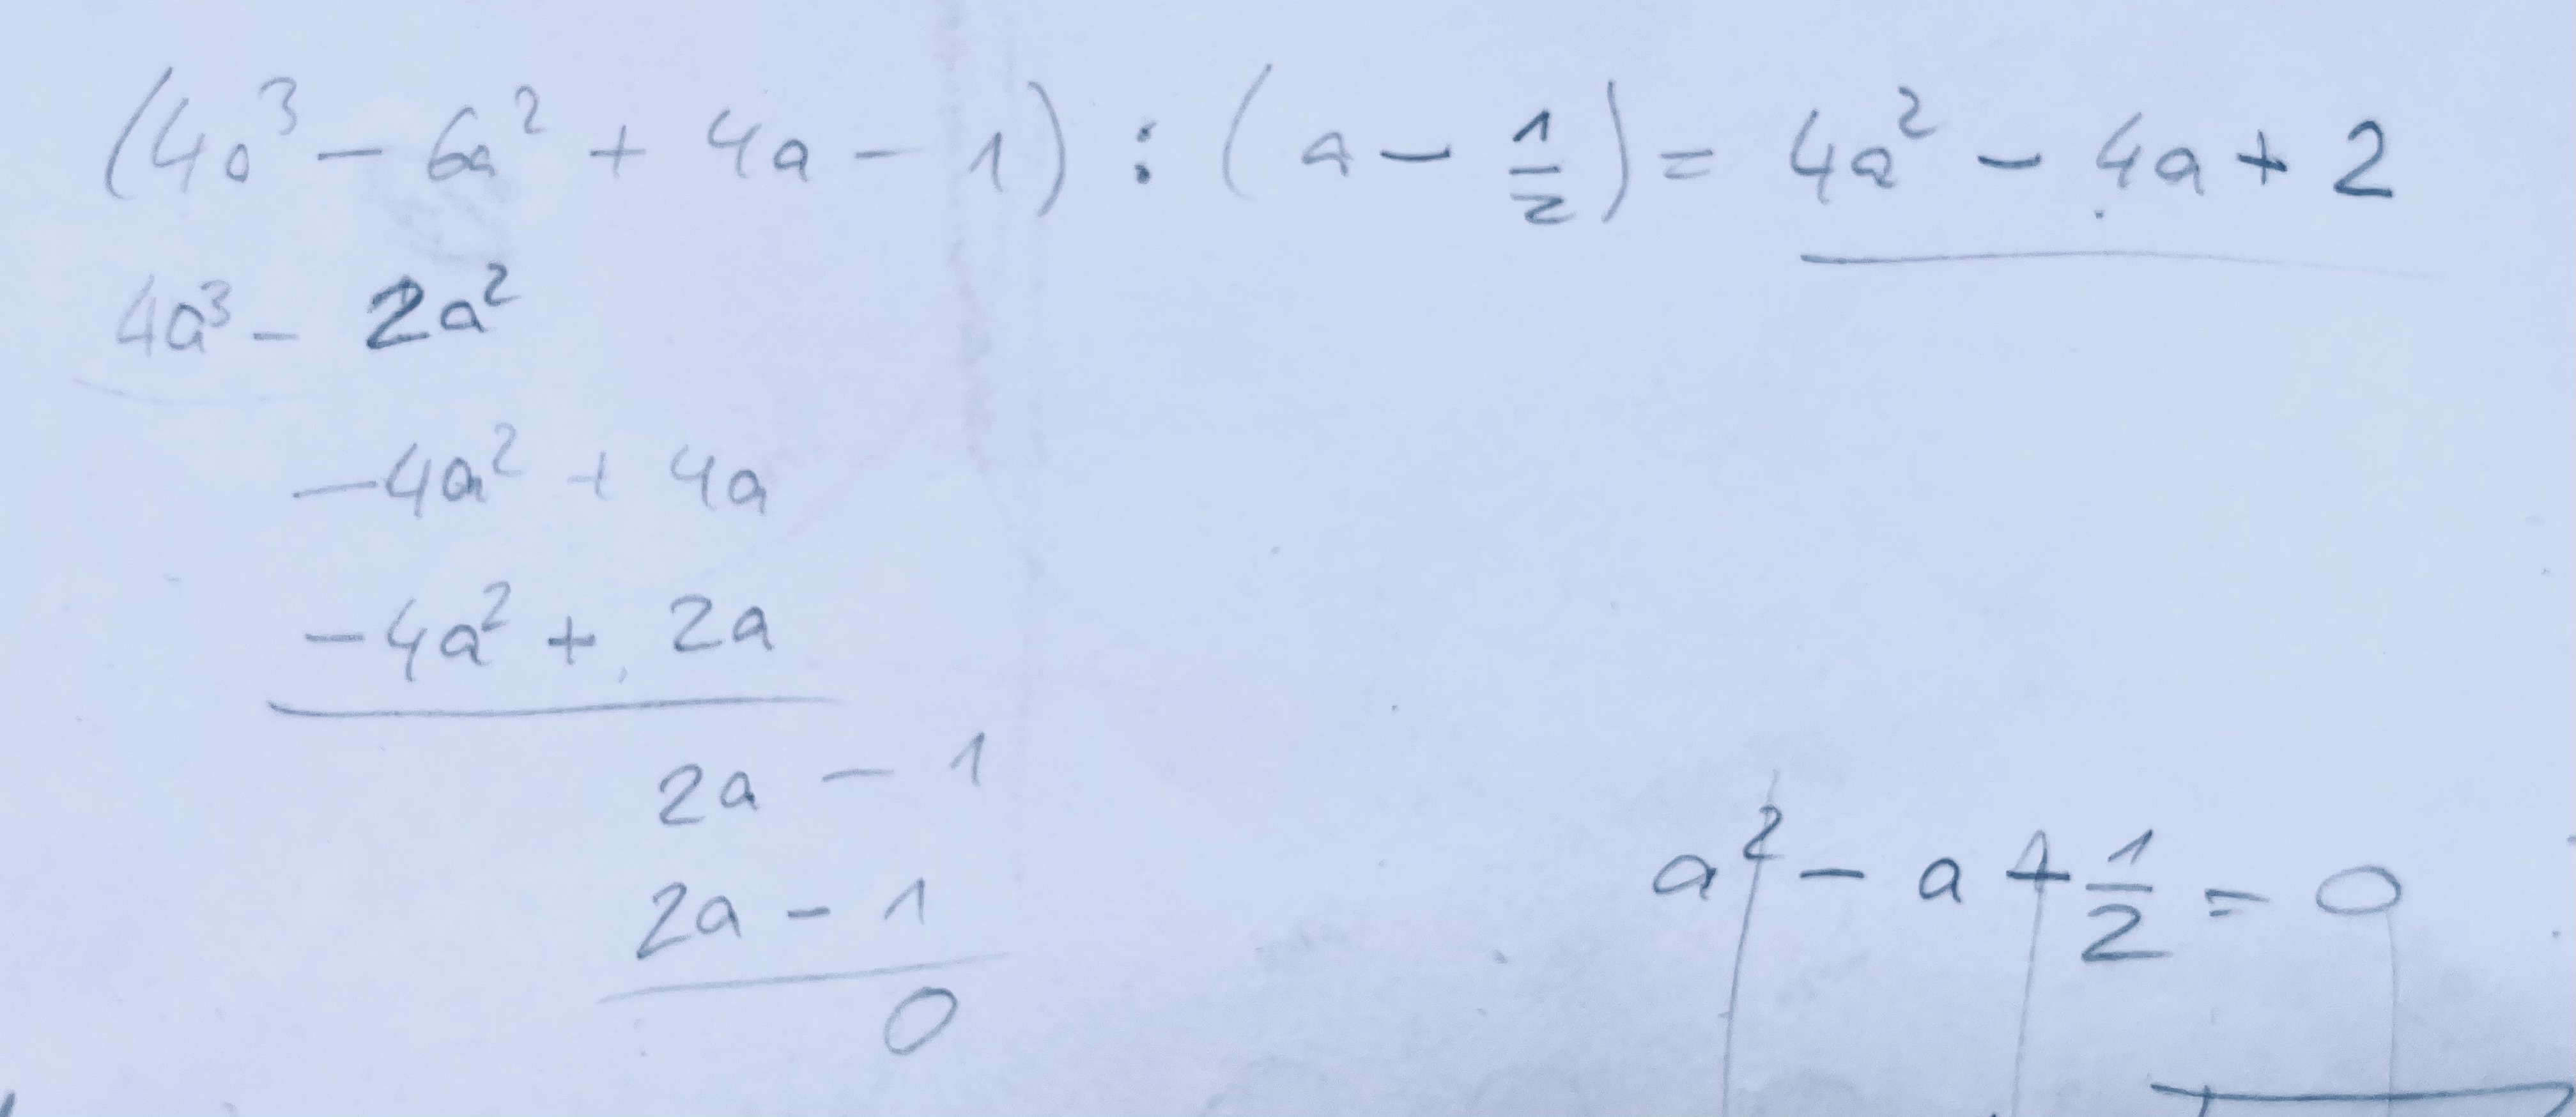 (4a³ - 6a² + 4a - 1) : (a - 1/2) = 4a² - 4a + 2
4a³ - 2a²
-4a² + 4a
-4a² + 2a
2a - 1
2a - 1
0
a² - a + 1/2 = 0